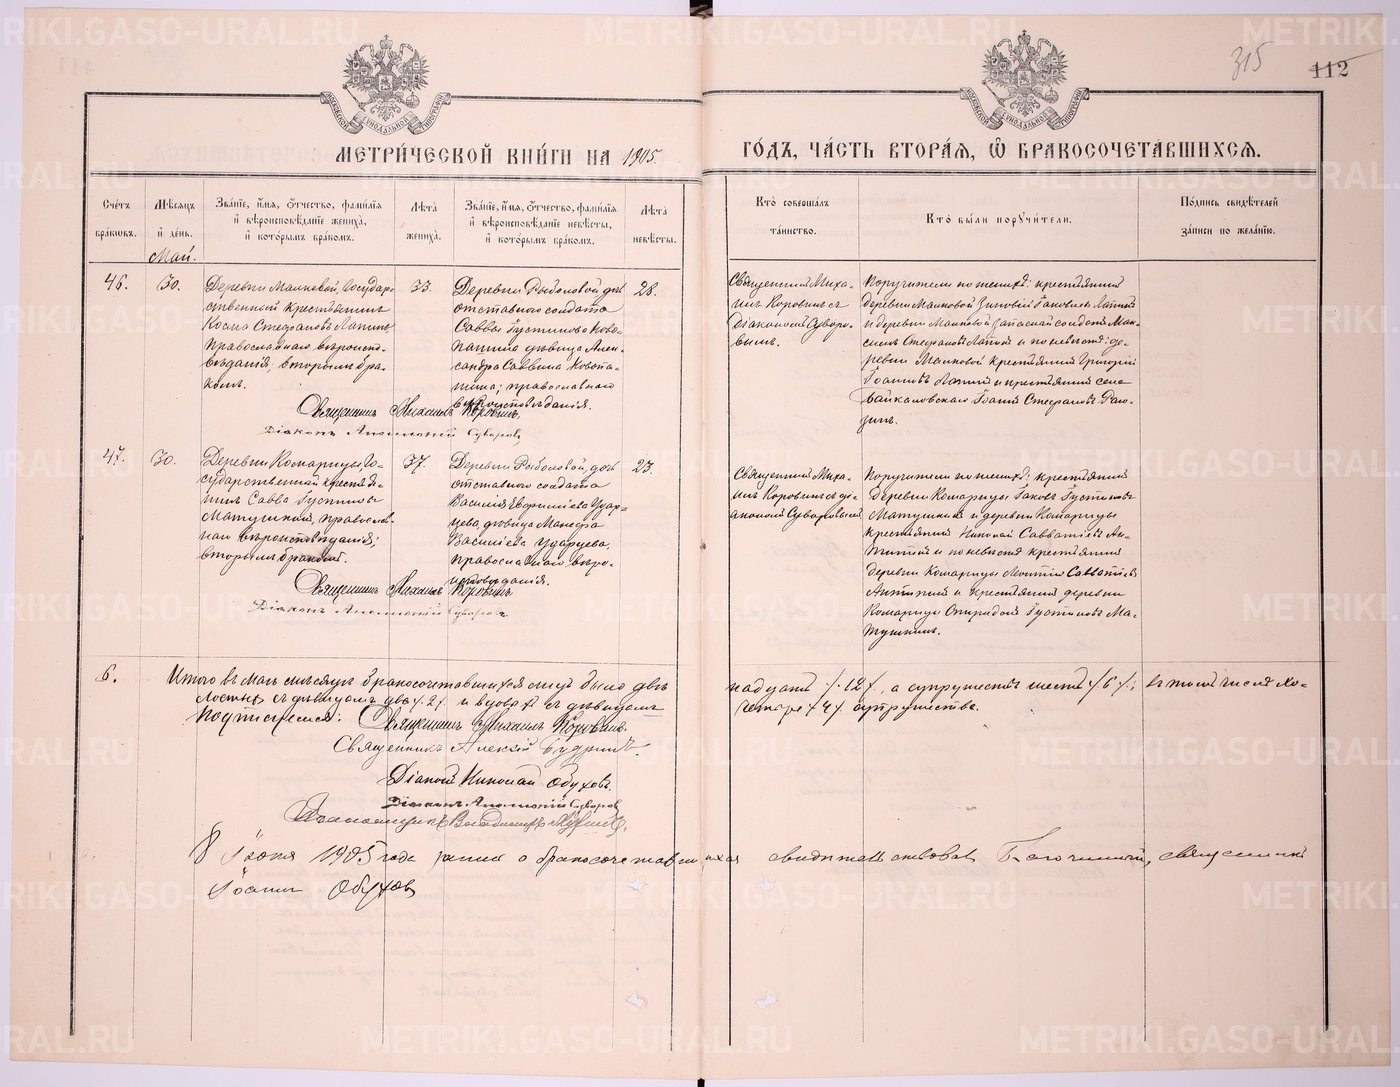 315
112
МЕТРИ́ЧЕСКОЙ КНИ́ГИ НА 1905
ГО́ДЪ, ЧА́СТЬ ВТОРА́Я, Ѿ БРАКОСОЧЕТА́ВШИХСЯ.
Сче́тъ бра́ковъ.
Мѣ́сяцъ и҆ де́нь.
Зва́нїе, и҆́мя, ѻ҆́тчество, фами́лїя и҆ вѣроисповѣ́данїе жениха̀, и҆ кото́рымъ бра́комъ.
Лѣ́та жениха̀.
Зва́нїе, и҆́мя, ѻ҆́тчество, фами́лїя и҆ вѣроисповѣ́данїе невѣ́сты, и҆ кото́рымъ бра́комъ.
Лѣ́та невѣ́сты.
Кто̀ соверша́лъ та́инство.
Кто̀ бы́ли поручи́тели.
По́дпись свидѣ́телей за́писи по жела́нїю.
Май.
46.
30.
Деревни Малковой, Государ-
ственный Крестьянинъ
Косма Стефановъ Лапинъ
православнаго вѣроиспо-
вѣданія, вторымъ бра-
комъ.
33.
Деревни Рыболовой, дочь
отставного солдата
Саввы Іустинова Ново-
пашина дѣвица Алек-
сандра Саввина Новопа-
шина; православнаго
вѣроисповѣданія.
28.
Священникъ Миха-
илъ Коровинъ съ
Діакономъ Суворо-
вымъ.
Поручители по женихѣ: крестьянинъ
деревни Малковой Зиновій Іаковлевъ Лапинъ
и деревни Малковой Запасной солдатъ Мак-
симъ Стефановъ Лапинъ и по невѣстѣ: де-
ревни Малковой крестьянинъ Григорій
Іоанновъ Лапинъ и крестьянинъ села
Байкаловскаго Іоаннъ Стефановъ
Священникъ Михаилъ Коровинъ.
Діаконъ Анатолій Суворовъ.
47.
30.
Деревни Комарицы, Го-
сударственный крестья-
нинъ Савва Іустиновъ
Матушкинъ, православ-
наго вѣроисповѣданія;
вторымъ бракомъ.
37.
Деревни Рыболовой, дочь
отставного солдата
Василія Евфиміева Ударцева, дѣвица
Васильева Ударцева,
православнаго вѣро-
исповѣданія.
23.
Священникъ Миха-
илъ Коровинъ съ ді-
акономъ Суворовымъ
Поручители по женихѣ: крестьянинъ
деревни Комарицы Іаковъ Іустиновъ
Матушкинъ и деревни Комарицы
крестьянинъ Николай Савватіевъ Ан-
типинъ и по невѣстѣ крестьянинъ
деревни Комарицы Леонтій Савватіевъ
Антипинъ и крестьянинъ деревни
Комарицы Спиридонъ Іустиновъ Ма-
тушкинъ.
Священникъ Михаилъ Коровинъ.
Діаконъ Анатолій Суворовъ.
6.
Итого въ Маѣ мѣсяцѣ бракосочетавшихся лицъ было две-
надцать /12/, а супружествъ шесть /6/; въ томъ числѣ хо-
лостыхъ съ дѣвицами два /2/ и вдовъ съ дѣвицами
четыре /4/ супружества.
Подписались: Священникъ Михаилъ Коровинъ.
Священникъ Алексій
Діаконъ Николай Обуховъ.
Діаконъ Анатолій Суворовъ
Псаломщикъ Владимиръ
8 Іюня 1905 года записи о бракосочетавшихся свидѣтельствовалъ Благочинный, священникъ
Іоаннъ Обуховъ
METRIKI.GASO-URAL.RU